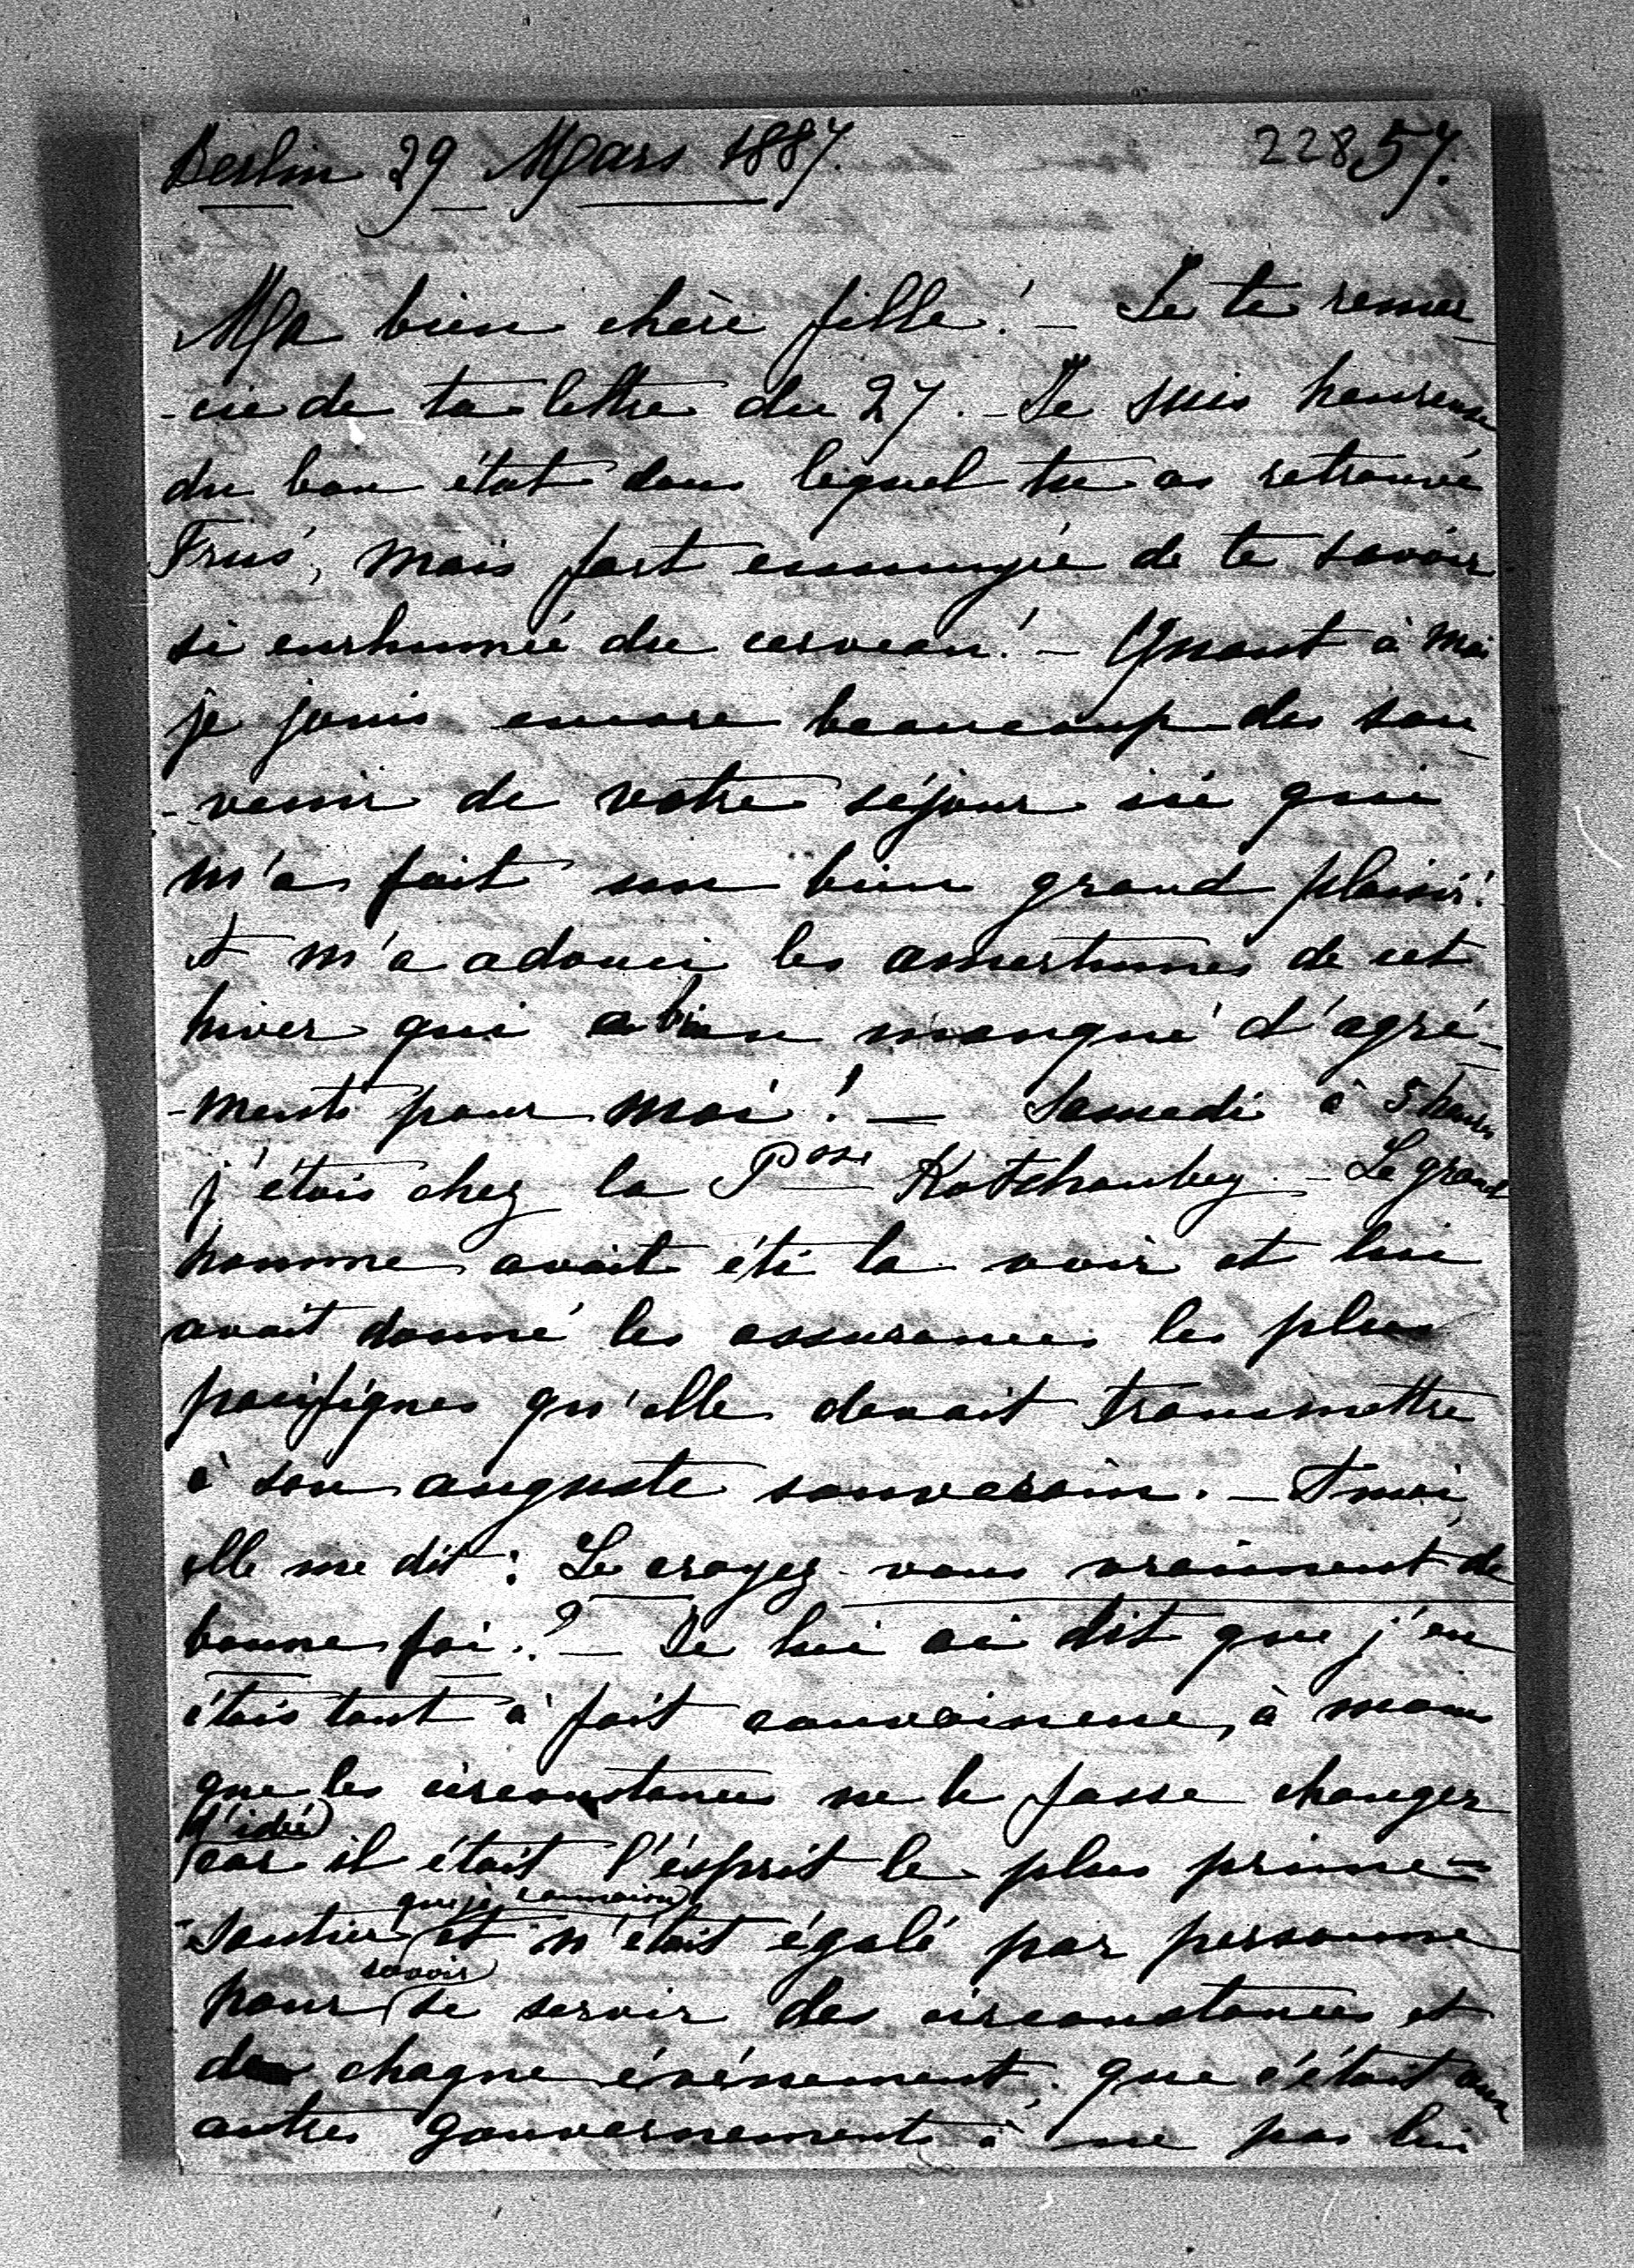 Berlin 29 Mars 1887. 228 57.
Ma bien chère fille! – Je te remer
-cie de ta lettre du 27. – Je suis heureuse
du bon état dans lequel tu as retrouvé
mais fort ennuyée de te savoir
si enrhumée du cerveau! – Quant à moi
je jouis encore beaucoup du sou
-venir de votre séjour ici qui
m'a fait un bien grand plaisir!
et m'a adouci les amertumes de cet
hiver qui a bien manqué d'agré-
-ments pour moi! – Samedi à 5 heures
j'étais chez la Psse Kotchoubey. – Le grand
homme avait été la voir et lui
avait donné les assurances les plus
pacifiques qu'elle devait transmettre
à son auguste souverain. –
elle me dit: Le croyez-vous vraiment de
bonne foi? – Je lui ai dit que j'en
étais tout à fait convaincue, à moins
que les circonstances ne le fasse changer
d'idée
car il était l'esprit le plus prime-
que je connaisse
-sautier et n'était égalé par personne
savoir
pour se servir des circonstances et
de chaque événement. que c'était aux
autres gouvernements à ne pas lui